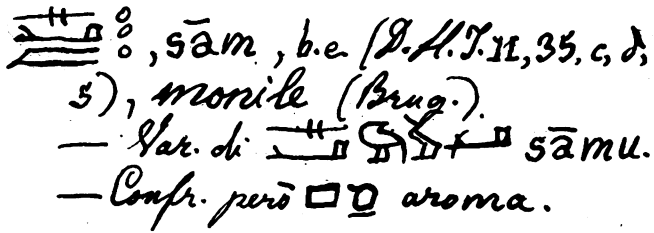 , sām, b.e. (D.H.I. II, 35, c, d,
5), monile (Brug.).
— Var. di sāmu.
— Confr. però aroma.